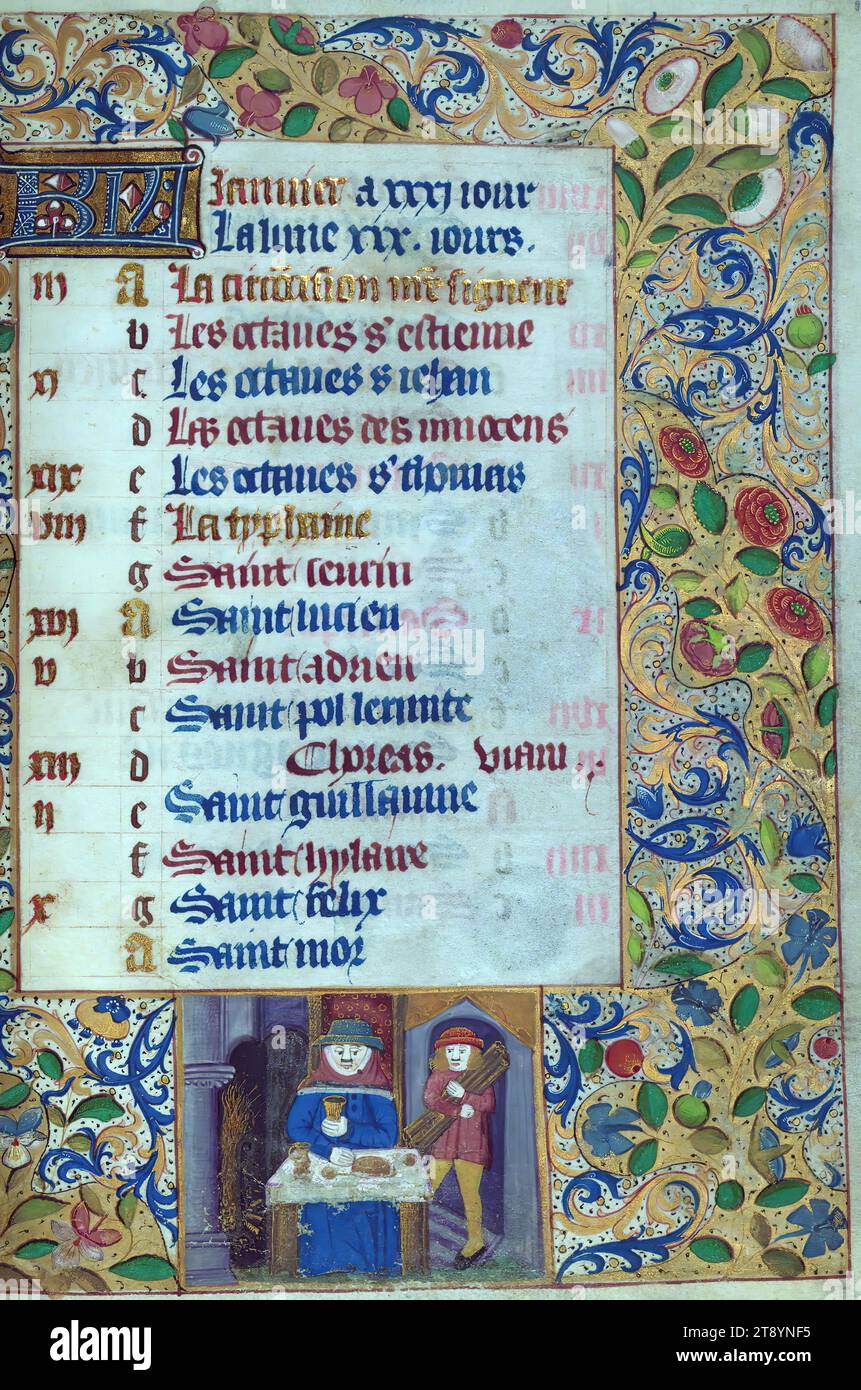 KL Januier a xxxj iour
La lune xix. iours.
iij A La circucision nre signeur
b Les octaues s' estienne
xj c Les octaues s iehan
d Les octaues des innocens
xix e Les octaues s' thomas
viij f La typhaine
g Saint seurin
xvj A Saint lucien
v b Saint adrien
c Saint pol lermite
xiij d Choreas. viani
ij e Saint guillaume
f Saint hylaire
x g Saint felix
A Saint mor
alamy
Image ID: 2T8YNF5
www.alamy.com